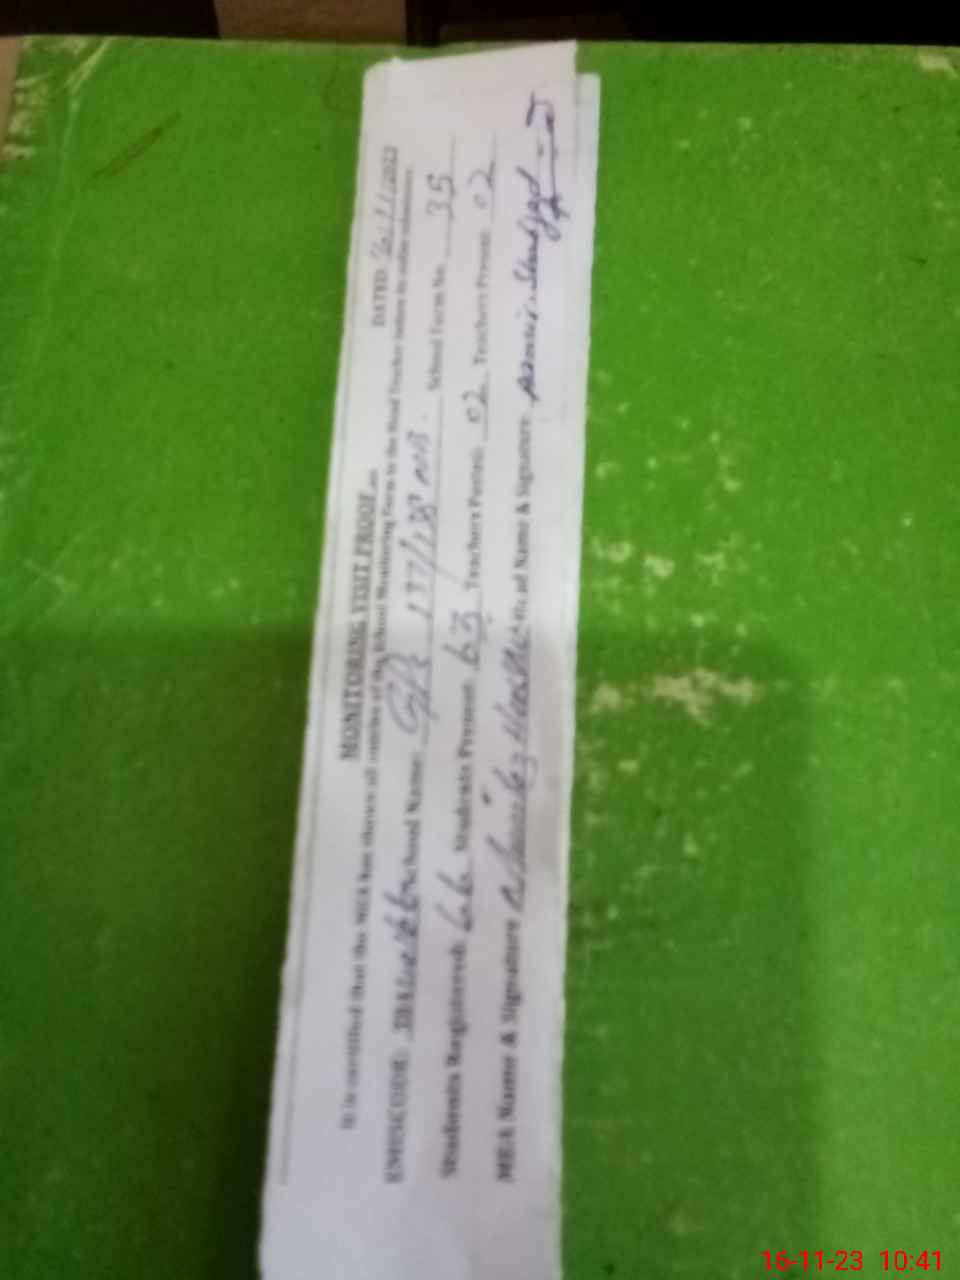 MONITORING VISIT PROOF
DATED: 16/11/2023
It is certified that the MEA has shown all entries of the School Monitoring Form to the Head Teacher before its online submission.
EMISCODE: School Name: GPS 137/138 NB. School Form No. 35
Students Registered: 66 Students Present: 63 Teachers Posted: 02 Teachers Present: 02
MEA Name & Signature Head Name & Signature Shahzad
16-11-23 10:41